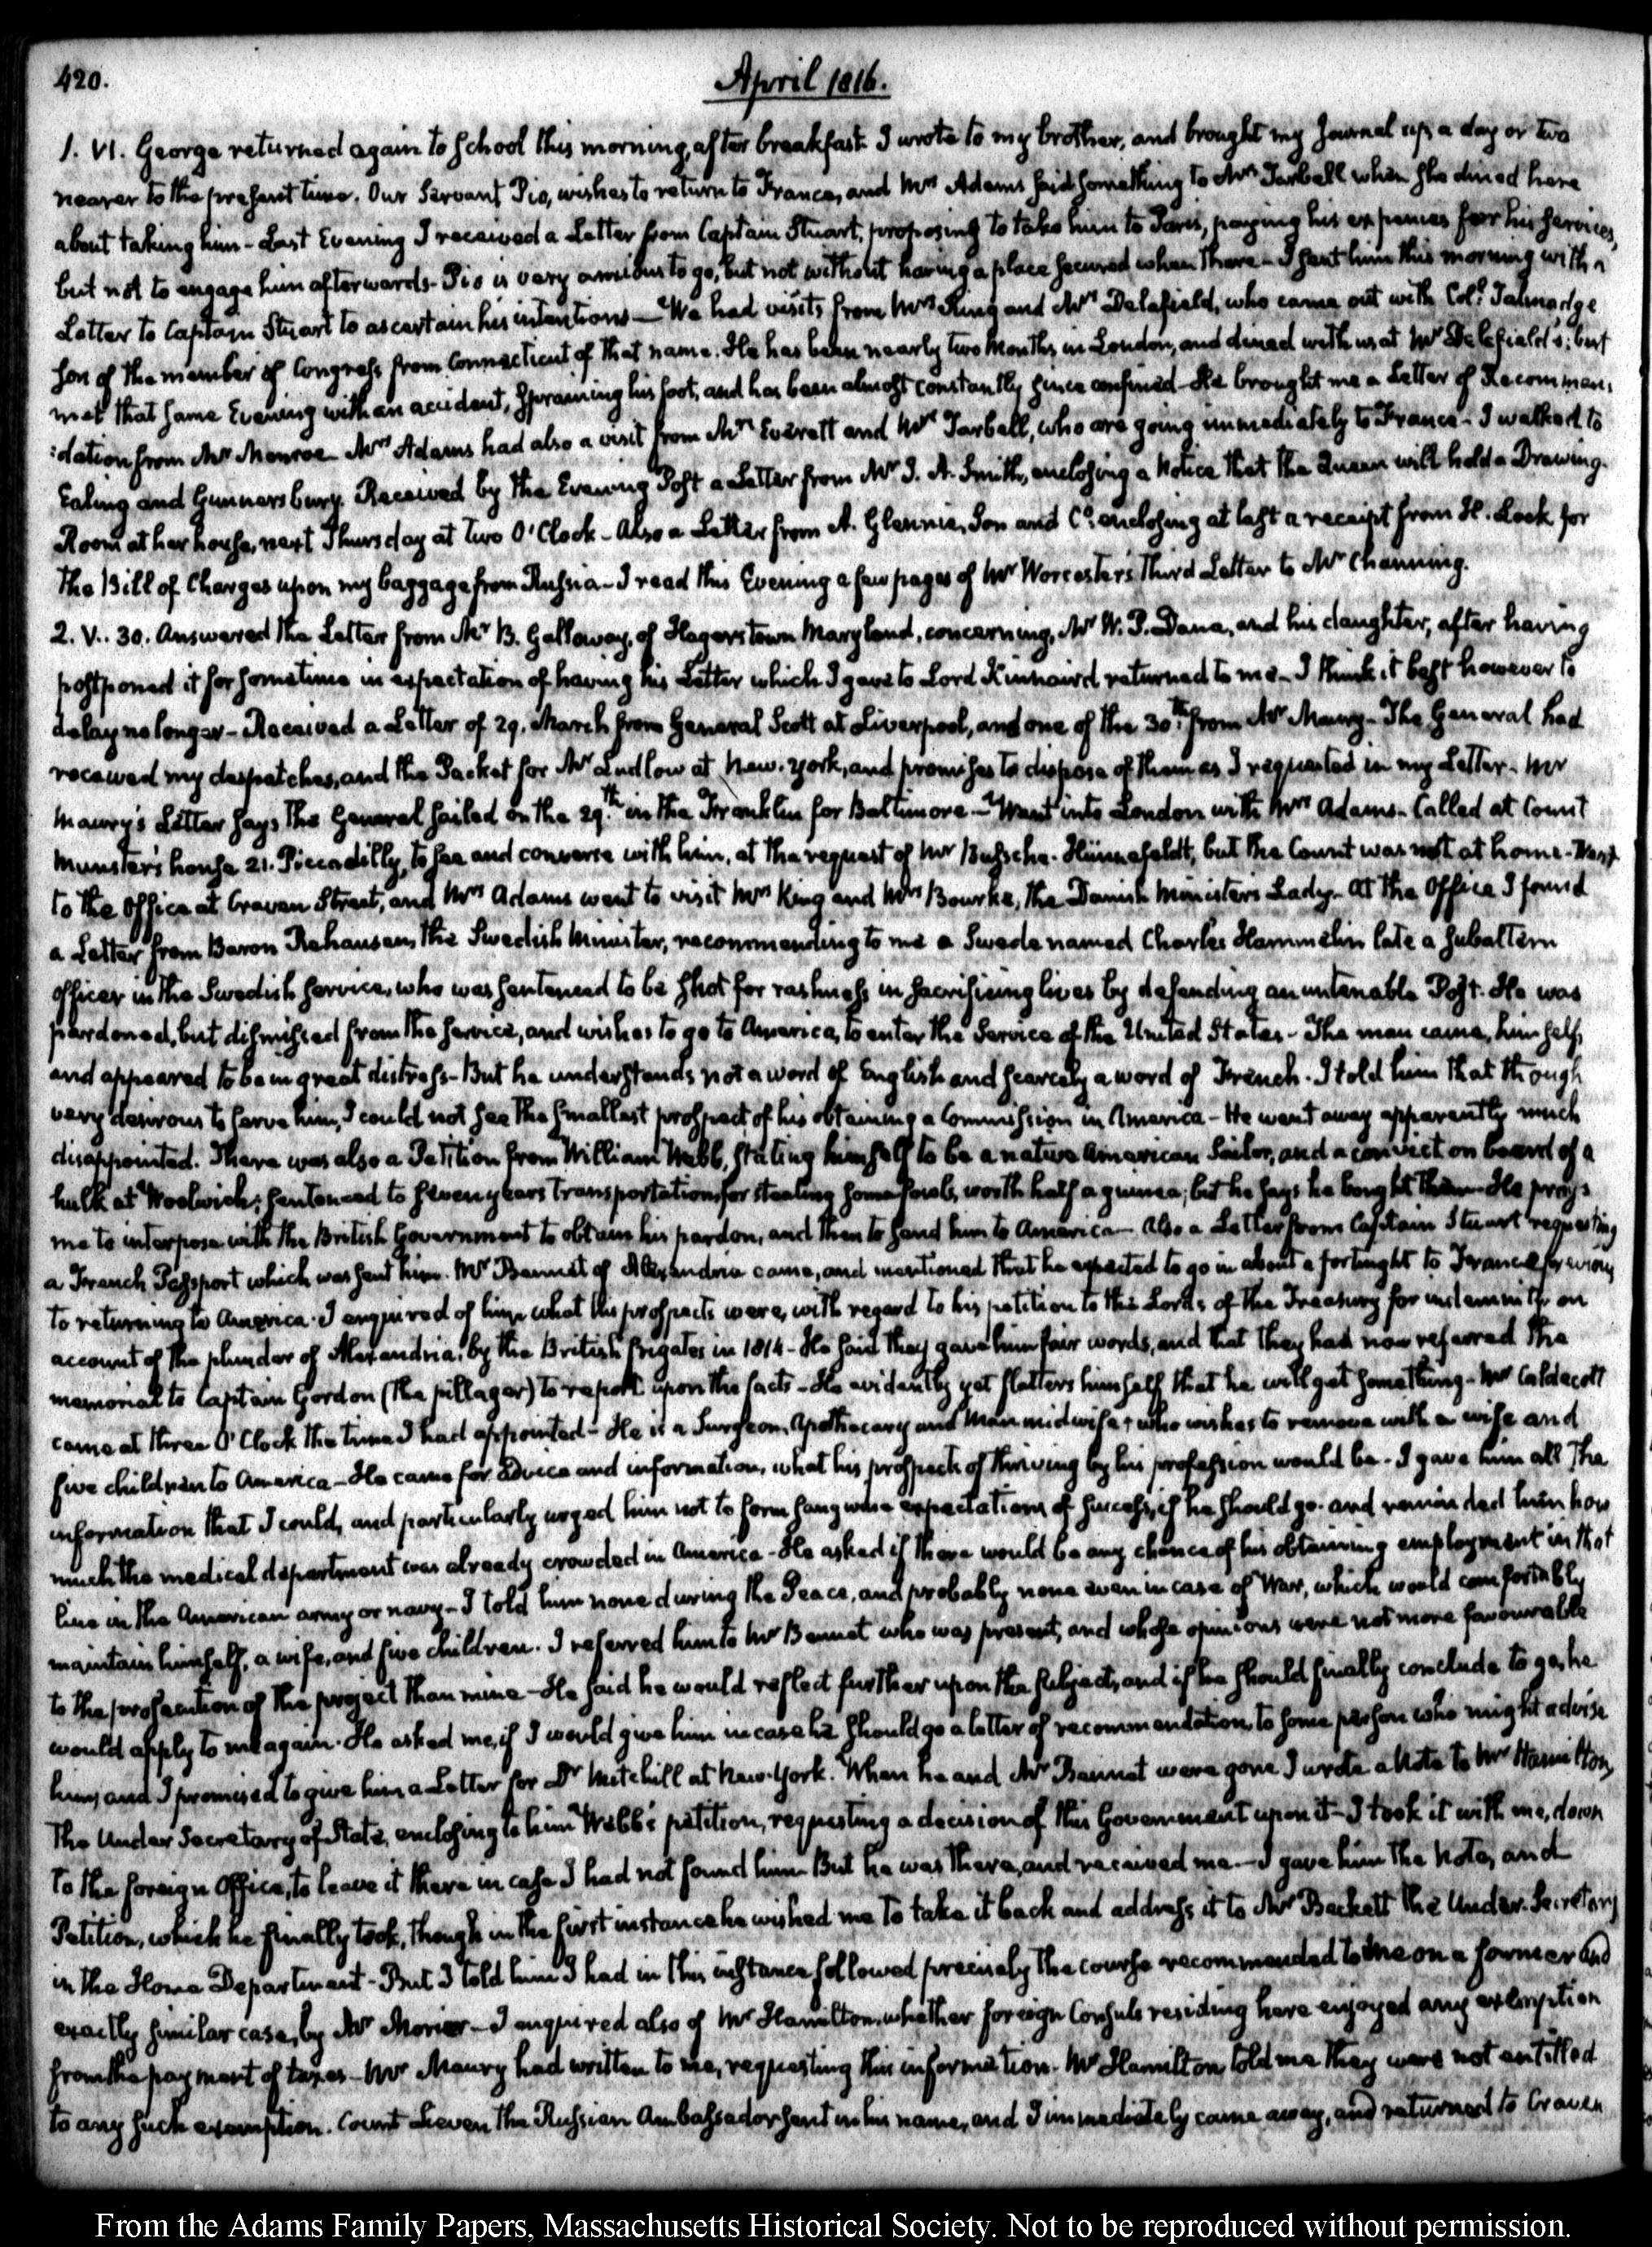 420.
April 1816.
1. VI. George returned again to School this morning, after breakfast. I wrote to my brother, and brought my Journal up, a day or two
nearer to the present time. Our Servant Pio, wishes to return to France, and Mrs Adams said something to Mrs Tarbell when she dined here
about taking him - Last Evening I received a Letter from Captain Stuart, proposing to take him to Paris, paying his expences for his services,
but not to engage him afterwards - Pio is very anxious to go, but not without having a place secured when there - I sent him this morning with a
Letter to Captain Stuart to ascertain his intentions - We had visits from Mrs King and Mrs Delafield, who came out with Coll. Talmadge
son of the member of Congress from Connecticut of that name. He has been nearly two Months in London, and dined with us at Mr Delafield's; but
met that same Evening with an accident, spraining his foot, and has been almost constantly since confined - He brought me a Letter of Recommen,
:dation from Mr Monroe - Mrs Adams had also a visit from Mrs Everett and Mrs Tarbell, who are going immediately to France - I walked to
Ealing and Gunnersbury. Received by the Evening Post a Letter from Mr J. A. Smith, enclosing a Notice that the Queen will hold a Drawing-
Room at her house, next Thursday at two O'Clock - Also a Letter from A. Glennie, Son and Co. enclosing at last a receipt from H. Lock for
the Bill of Charges upon my baggage from Russia - I read this Evening a few pages of Mr Worcester's Third Letter to Mr Channing.
2. V.. 30. Answered the Letter from Mr B. Galloway, of Hagerstown Maryland, concerning, Mr W. P. Dana, and his daughter, after having
postponed it for sometime in expectation of having his Letter which I gave to Lord Kinnaird returned to me - I think it best however to
delay no longer - Received a Letter of 29. March from General Scott at Liverpool, and one of the 30th. from Mr Maury - The General had
received my despatches, and the Packet for Mr Ludlow at New-York, and promises to dispose of them as I requested in my Letter - Mr
Maury's Letter says the General sailed on the 29.th in the Franklin for Baltimore - Went into London with Mrs Adams. Called at Count
Munster's house 21. Piccadilly, to see and converse with him, at the request of Mr Bussche-Hünnefeldt, but the Count was not at home - Went
to the Office at Craven Street, and Mrs Adams went to visit Mrs King and Mrs Bourke, the Danish Minister's Lady - At the Office I found
a Letter from Baron Rehausen, the Swedish Minister, recommending to me a Swede named Charles Hammelin late a subaltern
officer in the Swedish service, who was sentenced to be shot for rashness in sacrificing lives by defending an untenable Post. He was
pardoned, but dismissed from the service, and wishes to go to America, to enter the Service of the United States - The man came, himself,
and appeared to be in great distress - But he understands not a word of English and scarcely a word of French. I told him that though
very desirous to serve him, I could not see the smallest prospect of his obtaining a Commission in America - He went away apparently much
disappointed. There was also a Petition from William Webb, stating himself to be a native American Sailor, and a convict on board of a
hulk at Woolwich; sentenced to seven years transportation, for stealing some fowls, worth half a guinea; but he says he bought them - He prays
me to interpose with the British Government to obtain his pardon, and then to send him to America - Also a Letter from Captain Stuart requesting
a French Passport which was sent him. Mr Bennet of Alexandria came, and mentioned that he expected to go in about a fortnight to France previous
to returning to America. I enquired of him what his prospects were, with regard to his petition to the Lords of the Treasury for indemnity on
account of the plunder of Alexandria, by the British frigates in 1814 - He said they gave him fair words, and that they had now referred the
memorial to Captain Gordon (the pillager) to report upon the facts - He evidently yet flatters himself that he will get something - Mr Caldecott
came at three O'Clock the time I had appointed - He is a Surgeon, Apothecary and Man midwife, who wishes to remove with a wife and
five children to America - He came for advice and information, what his prospects of thriving by his profession would be - I gave him all the
information that I could, and particularly urged him not to form sanguine expectations of success, if he should go. and reminded him how
much the medical department was already crowded in America - He asked if there would be any chance of his obtaining employment in that
line in the American army or navy - I told him none during the Peace, and probably none even in case of War, which would comfortably
maintain himself, a wife, and five children. I referred him to Mr Bennet who was present, and whose opinions were not more favourable
to the prosecution of the project than mine - He said he would reflect further upon the subject, and if he should finally conclude to go, he
would apply to me again. He asked me, if I would give him in case he should go a letter of recommendation, to some person who might advise
him, and I promised to give him a Letter for Dr Mitchill at New-York. When he and Mr Bennet were gone I wrote a Note to Mr Hamilton,
the Under Secretary of State, enclosing to him Webb's petition, requesting a decision of this Government upon it - I took it with me, down
to the foreign Office, to leave it there in case I had not found him - But he was there, and received me - I gave him the Note, and
Petition, which he finally took, though in the first instance he wished me to take it back and address it to Mr Beckett the Under-Secretary
in the Home Department - But I told him I had in this instance followed precisely the course recommended to me on a former and
exactly similar case, by Mr Morier - I enquired also of Mr Hamilton, whether foreign Consuls residing here enjoyed any exemption
from the payment of taxes - Mr Maury had written to me, requesting this information. Mr Hamilton told me they were not entitled
to any such exemption. Count Lieven the Russian Ambassador sent in his name, and I immediately came away, and returned to Craven
From the Adams Family Papers, Massachusetts Historical Society. Not to be reproduced without permission.